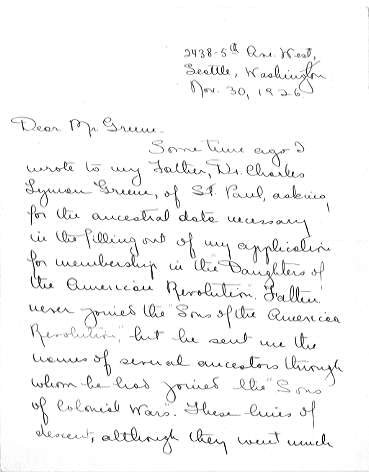 2438-5th Ave. West,
Seattle, Washington
Nov. 30, 1926
Dear Mr Greene.
Some time ago I
wrote to my Father, Dr. Charles
Lyman Greene, of St. Paul, asking
for the ancestral data necessary
in the filling out of my application
for membership in the "Daughters of
the American Revolution". Father
never joined the "Sons of the American
Revolution," but he sent me the
names of several ancestors through
whom he had joined the "Sons
of Colonial Wars". These lines of
descent, although they went much